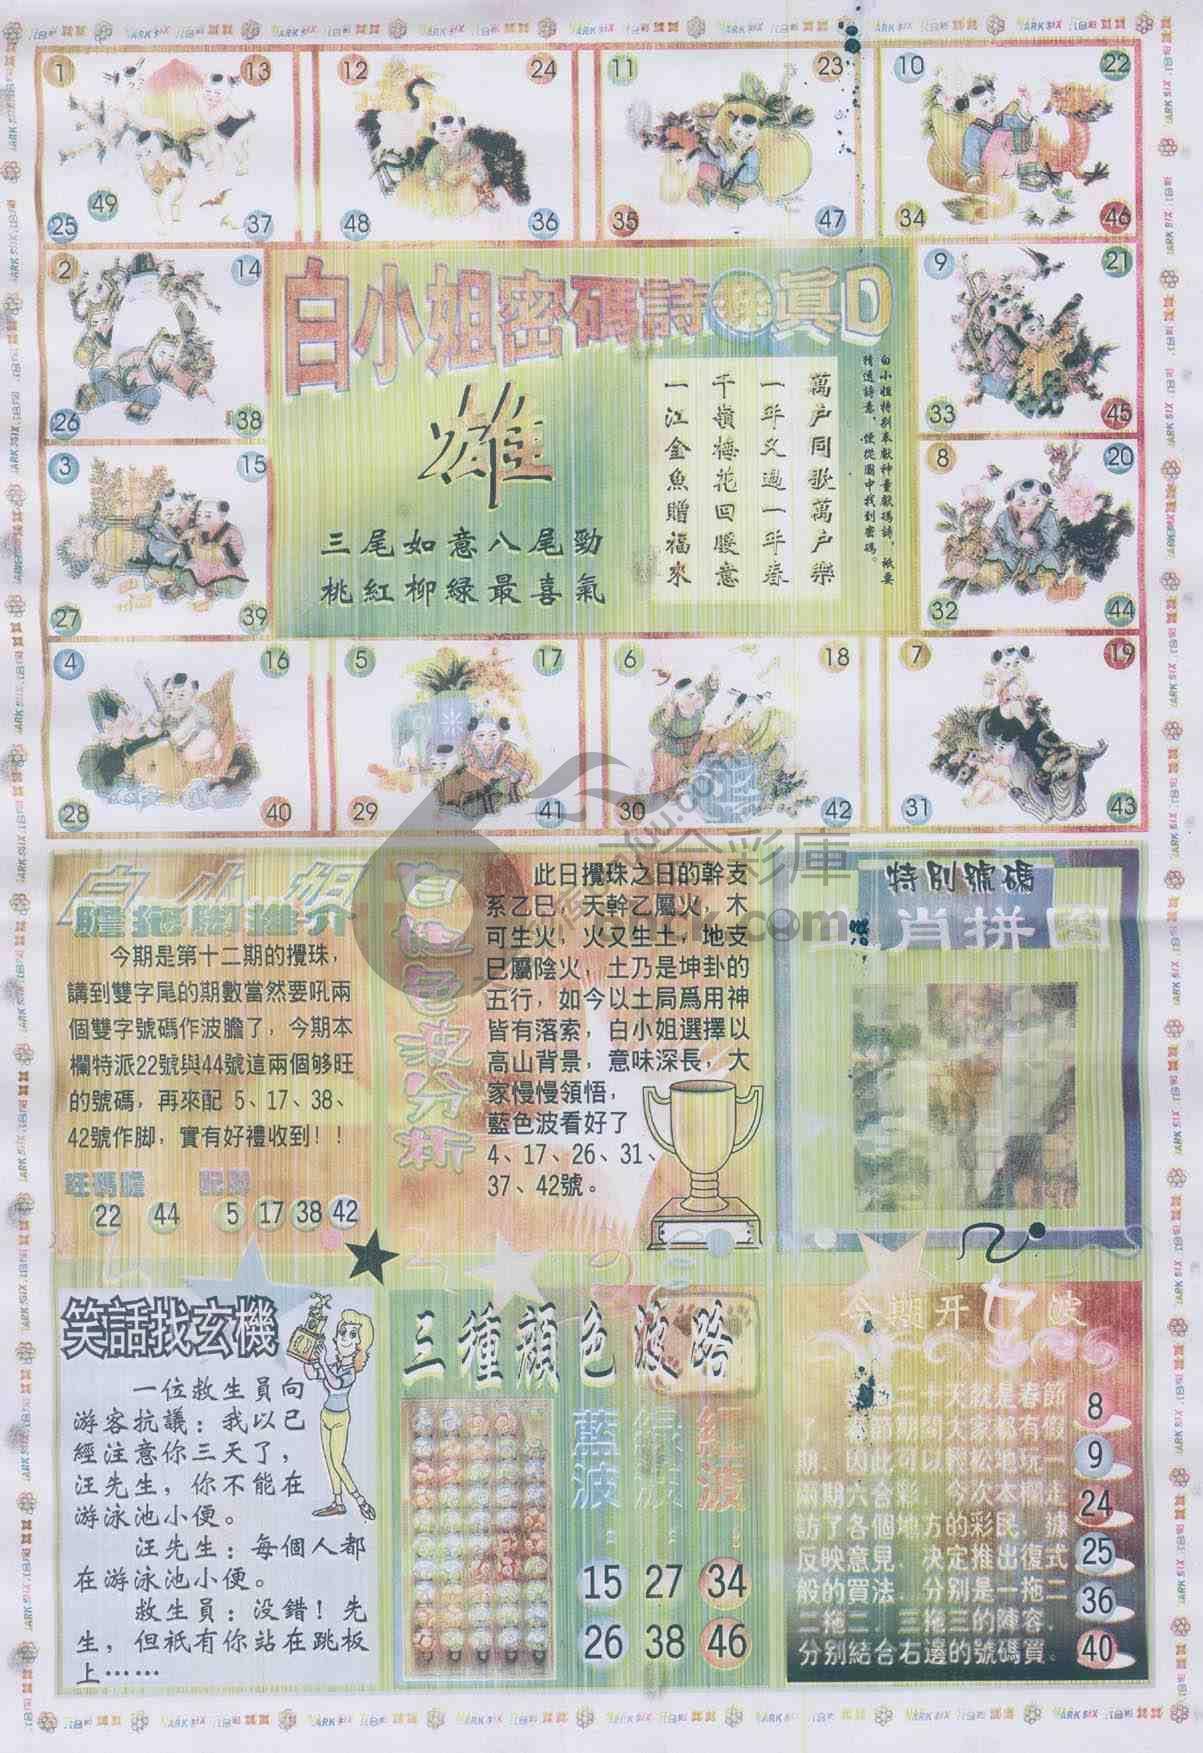 1 13
25 49 37
12 24
48 36
11 23
35 47
10 22
34 46
2 14
26 38
白小姐密碼詩 真D
9 21
33 45
白小姐特別奉獻神童獻碼詩，祇要
精通詩意，便從圖中找到密碼。
萬户同歌萬户樂
一年又過一年春
千嶺梅花回暖意
一江金魚贈福來
雄
三尾如意八尾勁
桃紅柳綠最喜氣
3 15
27 39
8 20
32 44
4 16
28 40
5 17
29 41
6 18
30 42
7 19
31 43
白小姐
今期是第十二期的攪珠，
講到雙字尾的期數當然要吼兩
個雙字號碼作波膽了，今期本
欄特派22號與44號這兩個够旺
的號碼，再來配 5、17、38、
42號作脚，實有好禮收到！！
旺碼膽 配脚
22 44 5 17 38 42
色波分析
此日攪珠之日的幹支
系乙巳，天幹乙屬火，木
可生火，火又生土，地支
巳屬陰火，土乃是坤卦的
五行，如今以土局爲用神
皆有落索，白小姐選擇以
高山背景，意味深長，大
家慢慢領悟，
藍色波看好了
4、17、26、31、
37、42號。
特別號碼
肖拼图
笑話找玄機
一位救生員向
游客抗議：我以已
經注意你三天了，
汪先生，你不能在
游泳池小便。
汪先生：每個人都
在游泳池小便。
救生員：没錯！先
生，但衹有你站在跳板
上⋯⋯
三種顔色波路
藍波：
綠波：
紅波：
15 27 34
26 38 46
今期开七波
二十天就是春節
了，春節期間大家都有假
期，因此可以輕松地玩一
兩期六合彩，今次本欄走
訪了各個地方的彩民，據
反映意見，决定推出復式
般的買法，分别是一拖二
二拖二，三拖三的陣容，
分别結合右邊的號碼買。
8
9
24
25
36
40